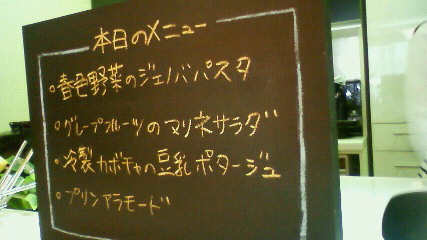 本日のメニュー
・春色野菜のジェノバパスタ
・グレープフルーツのマリネサラダ
・冷製カボチャの豆乳ポタージュ
・プリンアラモード